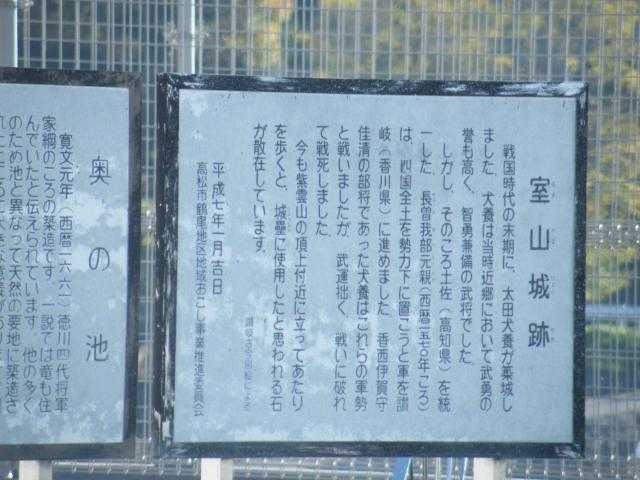 室山城跡
戦国時代の末期に、太田犬養が築城し
ました。犬養は当時近郷において武勇の
誉も高く、智勇兼備の武将でした。
しかし、そのころ土佐（高知県）を統
一した、長曽我部元親（西暦一五七〇年ごろ）
は、四国全土を勢力下に置こうと軍を讃
岐（香川県）に進めました。香西伊賀守
佳清の部将であった犬養はこれらの軍勢
と戦いましたが、武運拙く、戦いに破れ
て戦死しました。
今も紫雲山の頂上付近に立ってあたり
を歩くと、城壘に使用したと思われる石
が散在しています。
平成七年一月吉日
高松市鶴尾地区地域おこし事業推進委員会
奥の池
寛文元年（西暦一六六一）徳川四代将軍
家綱のころの築造です。一説では竜も住
んでいたと伝えられています。他の多く
のため池と異なって天然の要地に築造さ